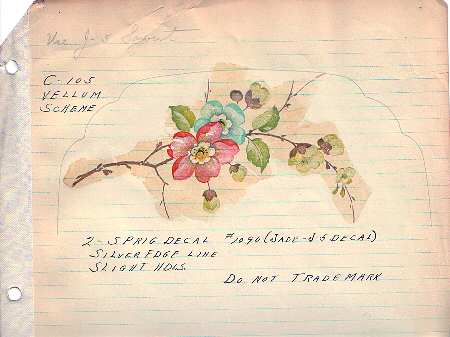 Use J-5
C-105
VELLUM
SCHEME
2-SPRIG DECAL #1090 (JADE-J5 DECAL)
SILVER EDGE LINE
SLIGHT HDLS.
DO NOT TRADEMARK